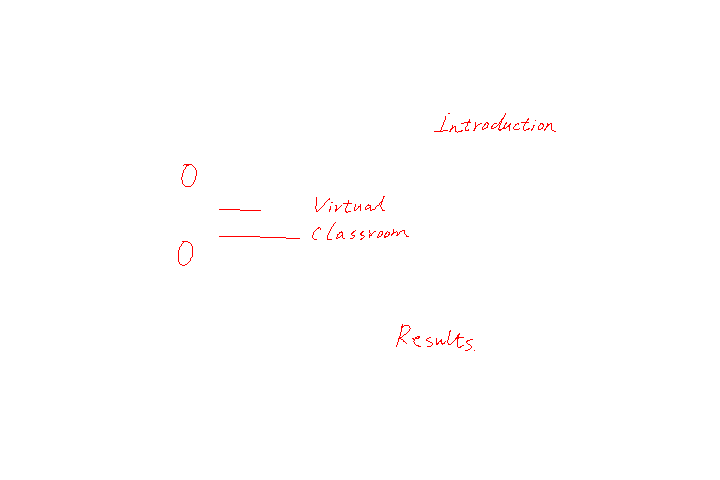 Introduction
0
Virtual
Classroom
0
Results.